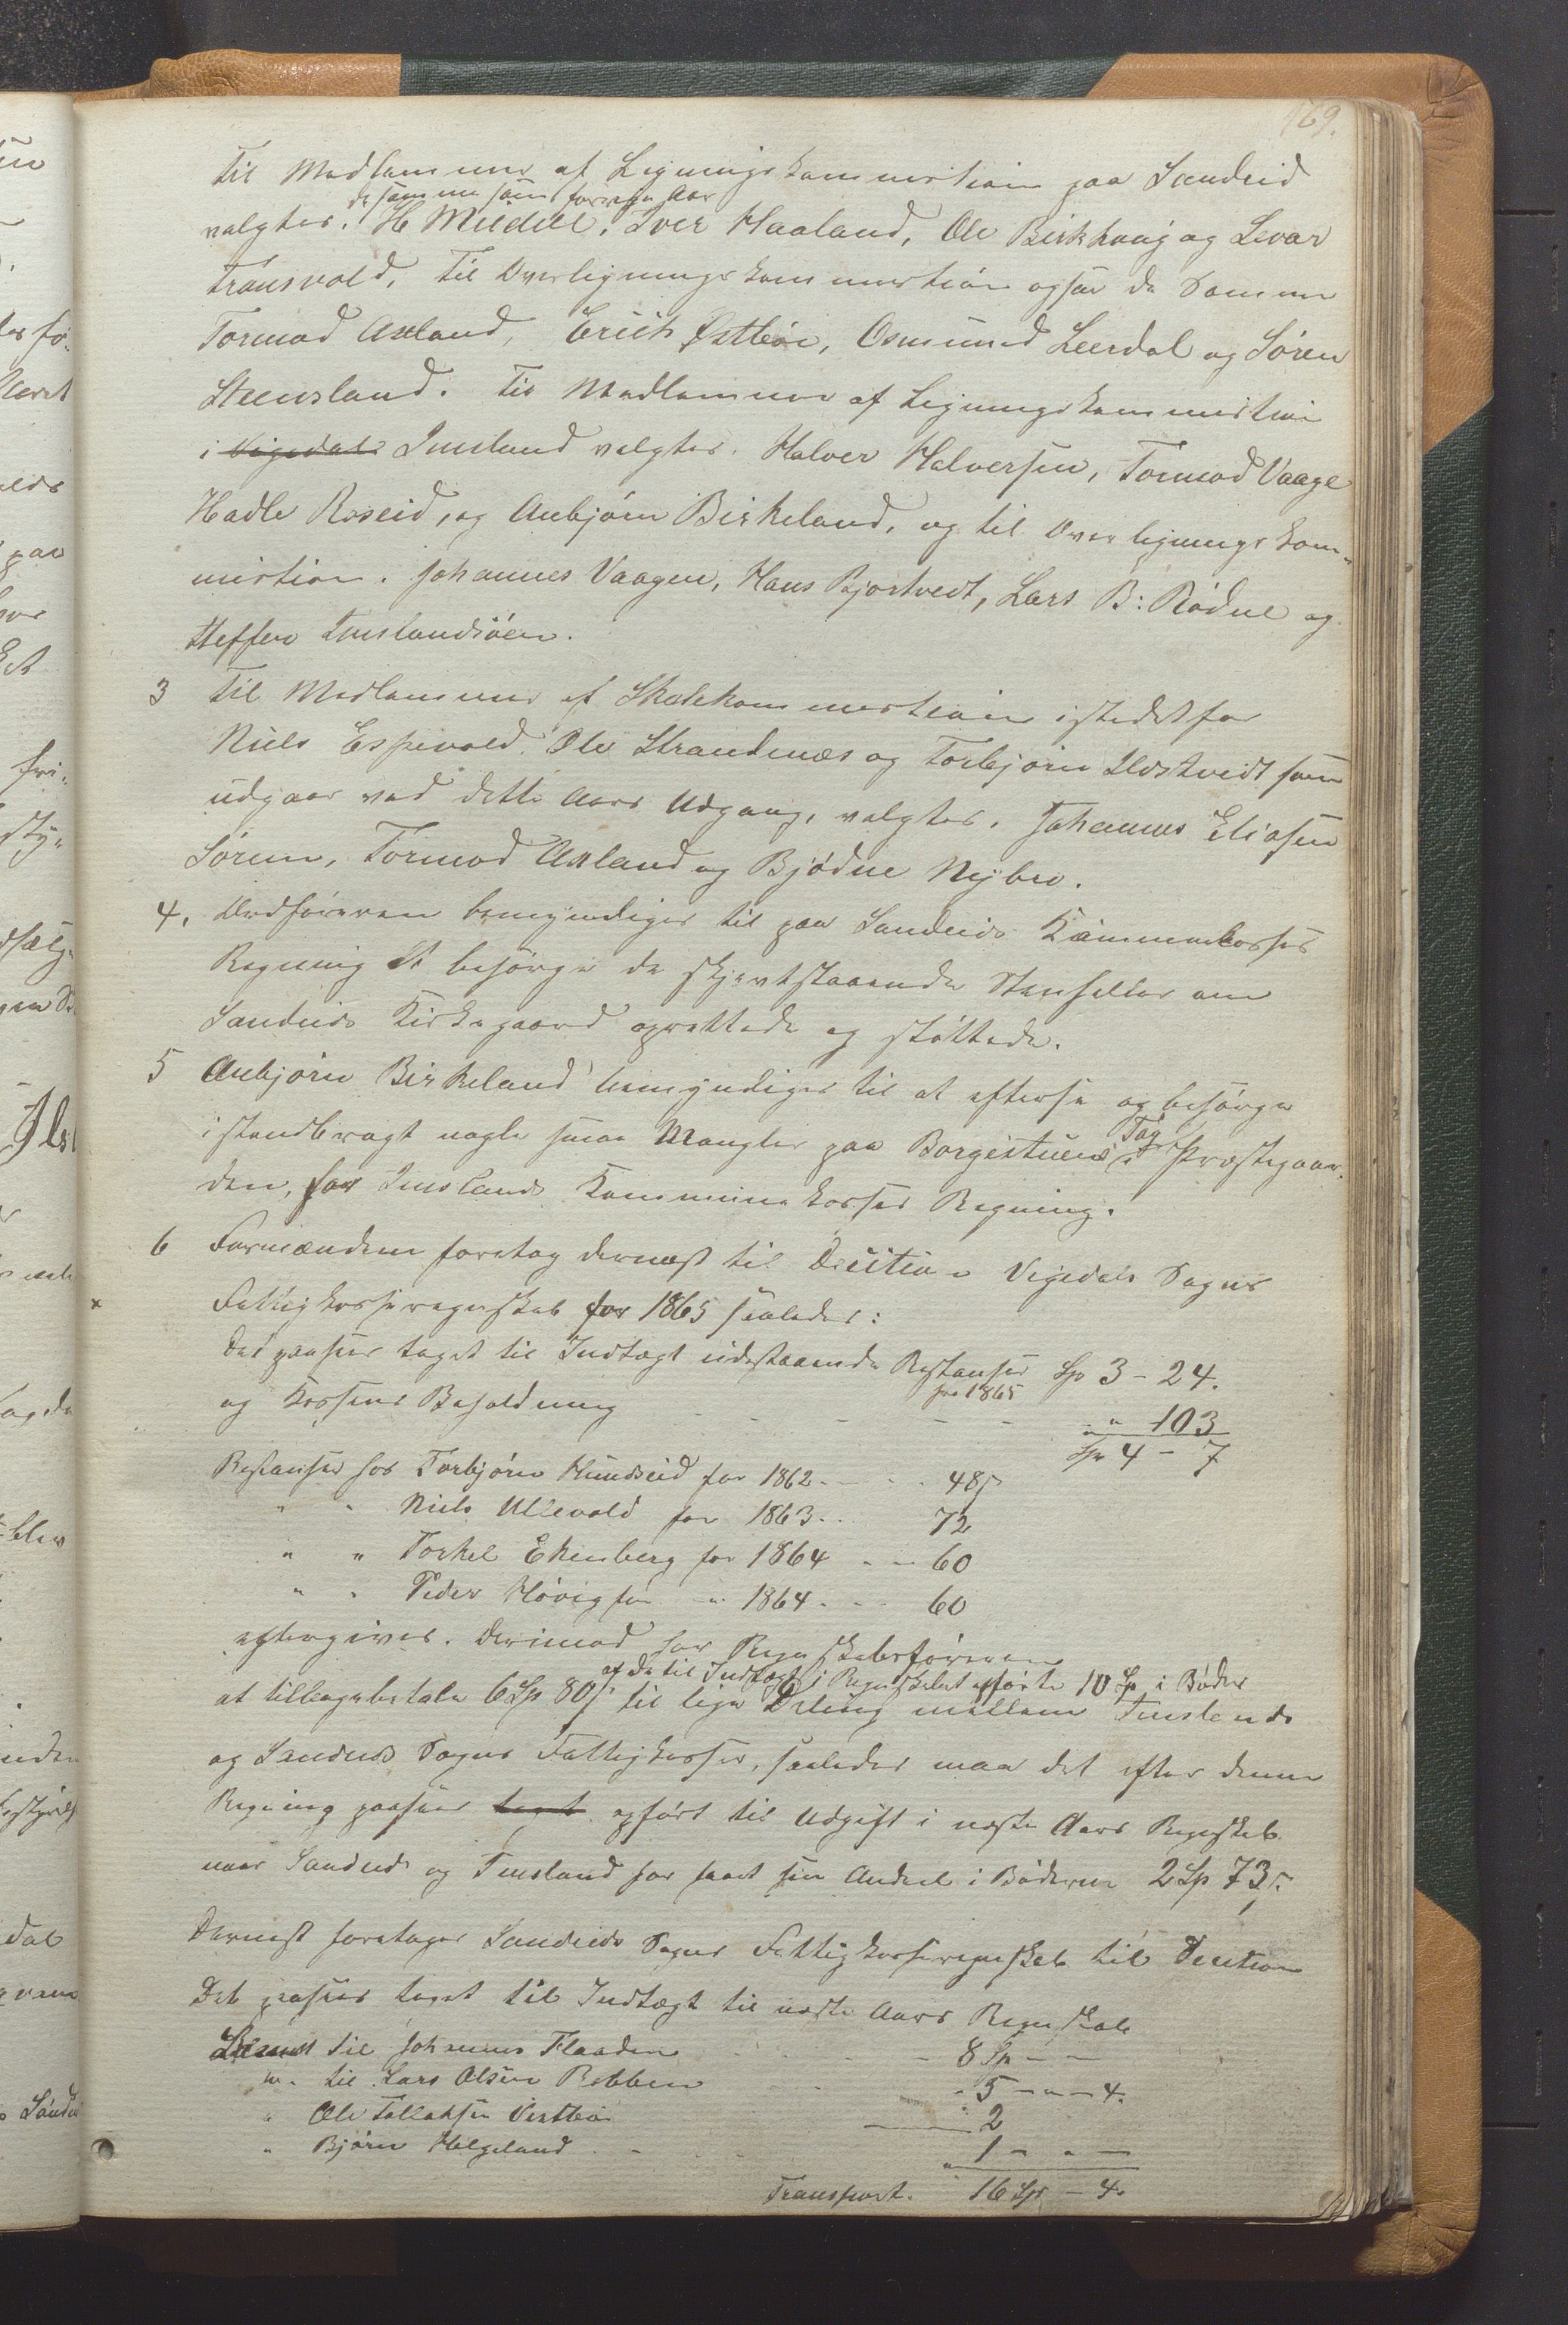 169.
Til Medlemmer af Ligningskommistion paa Sandeid
de samme som forrige Aar
valgtes. H Meidell, Iver Haaland, Ole Birkhaug og Levar
Transvold, til Overligningskommistion ogsaa de Samme
Tormod Axland, Erich Østbøe, Osmund Leerdal og Søren
Steensland. Til Medlemmer af Ligningskommistion
i Vigedals Imsland valgtes. Halver Halversen, Tormod Vaage
Hadle Roseid, og Anbjørn Birkeland, og til Overligningskom-
mistion. Johannes Vaagen, Hans Bjortvedt, Lars B: Rødne og
Steffen Imslandsøen.
3 Til Medlemmer af Skolekommistion istedetfor
Niels Espevold, Ole Strandenæs og Torbjørn Ilstveit som
udgaar ved dette Aars Udgang, valgtes. Johannes Eliasen
Søreim, Tormod Axland og Bjødne Nybru.
4. Ordføreren bemyndiges til paa Sandeids Kommunekasses
Regning at besørge de skjevtstaaende Stenheller om
Sandeids Kirkegaard oprettede og støttede.
5 Anbjørn Birkeland bemyndiges til at efterse og besørge
istandbragt nogle smaa Mangler paa Borgestuens Tag i Præstegaar-
den, for Imslands Kommunekasses Regning.
6 Formændene foretog dernæst til Desition Vigedals Sogns
Fattigkasseregnskab for 1865 saaledes:
Det paasees taget til Indtægt udestaaende Restanser Sp 3 - 24.
for 1865
og Kassens Beholdning - - - - - " 103
Sp 4 - 7
Restanser hos Torbjørn Hundseid for 1862 - - - 48 s
" " Niels Ullevold for 1863 - - 72
" " Torkel Ekenberg for 1864 - - 60
" " Peder Høvig for - 1864 - - 60
eftergives. Derimod har Regnskabsføreren
af de til Indtægt i Regnskabet opførte 10 Sp i Bøder
at tillægsbetale 6 Sp 80 s til lige Deling mellem Imslands
og Sandeids Sogns Fattigkasser, saaledes maa det efter denne
Regning paasees taget opført til Udgift i næste Aars Regnskab
naar Sandeid og Imsland har faaet sin Andeel i Bøderne 2 Sp 73 s.
Dernæst foretages Sandeids Sogns Fattigkasseregnskab til Desition
Det paasees taget til Indtægt til næste Aars Regnskab
til Johannes Flaaden - - - 8 Sp - -
" til Lars Olsen Robben - - 5 - " - 4.
" Ole Tollaksen Vestbøe 2
" Bjørn Helgeland - - - 1 - " -
Transport. 16 Sp - 4.